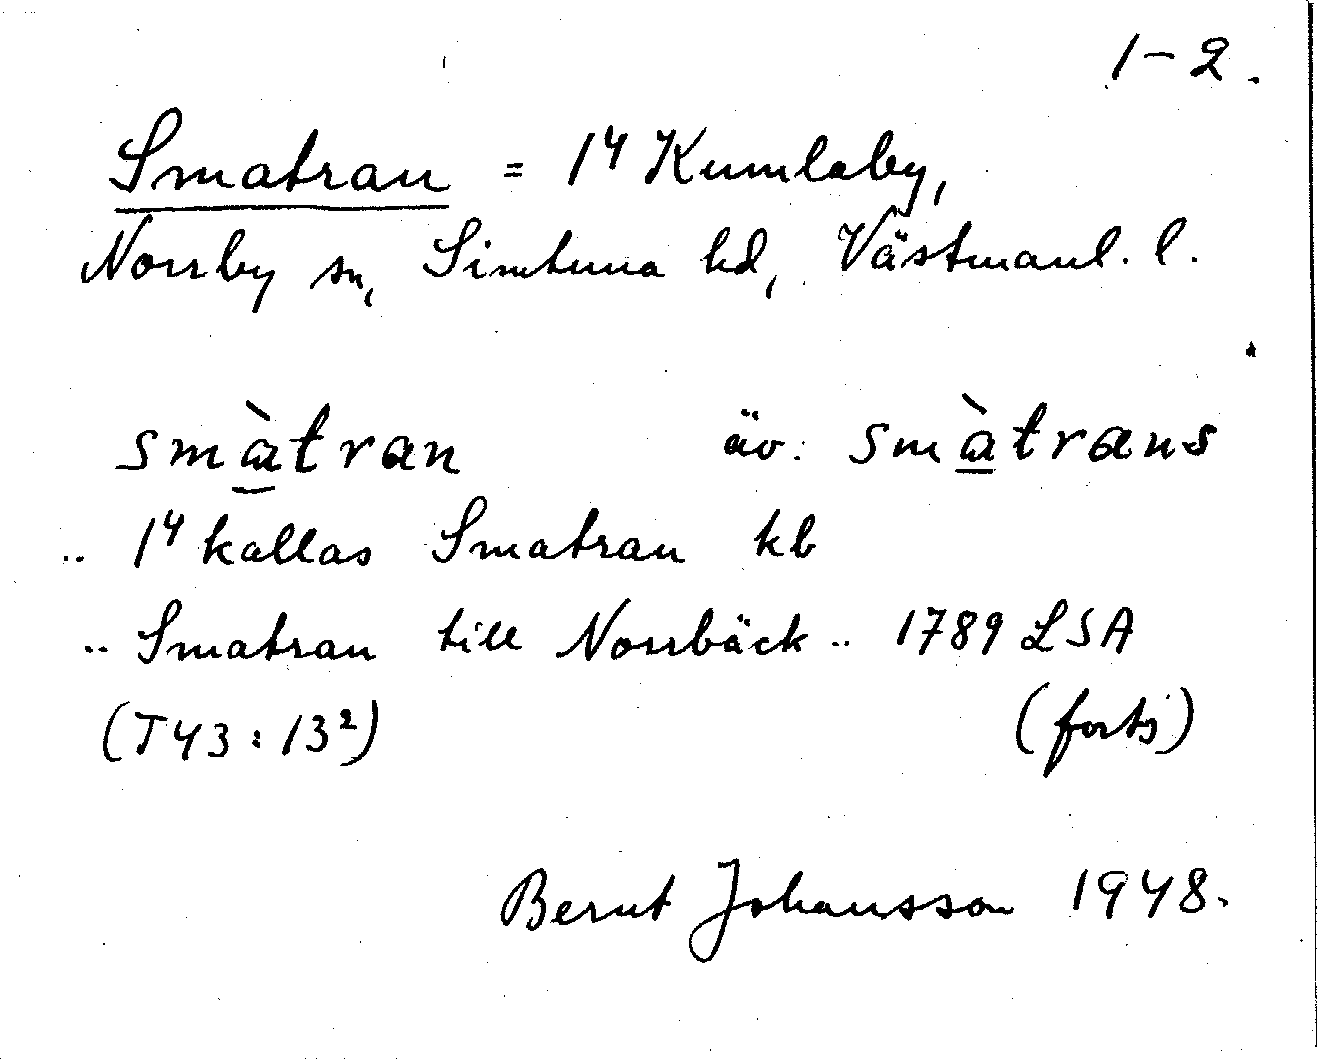 1-2.
Smatran = 1⁴ Kumlaby,
Norrby sn, Simtuna hd, Västmanl. l.
smà̱tran äv: smà̱trans
.. 1⁴ kallas Smatran kb
.. Smatran till Norrbäck .. 1789 LSA
(T43:13²) (forts)
Bernt Johansson 1948.